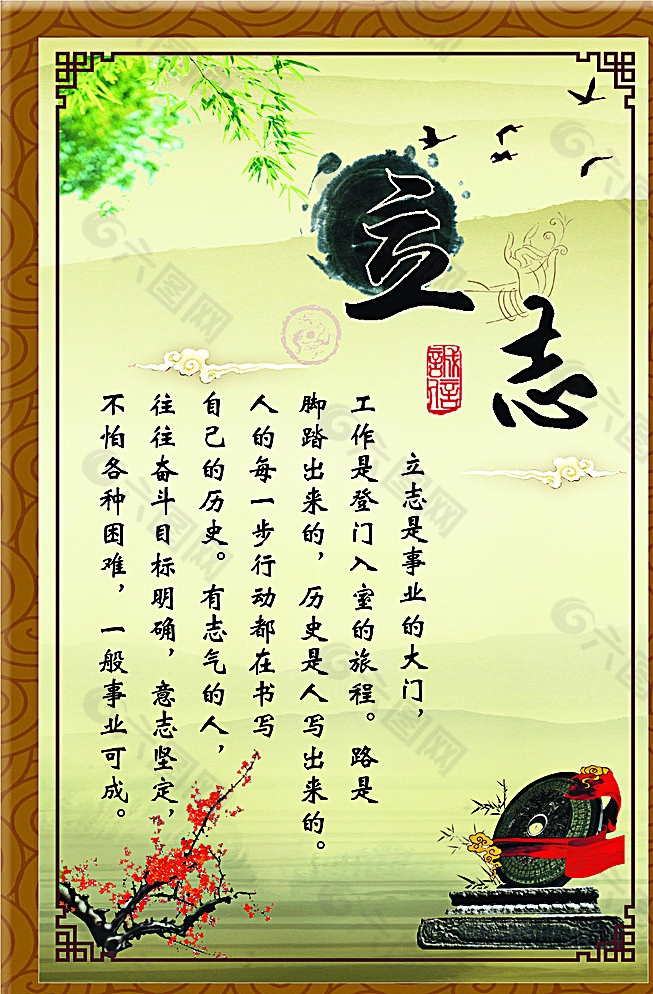 立志
誠信
立志是事业的大门，
工作是登门入室的旅程。路是
脚踏出来的，历史是人写出来的。
人的每一步行动都在书写
自己的历史。有志气的人，
往往奋斗目标明确，意志坚定，
不怕各种困难，一般事业可成。
六图网